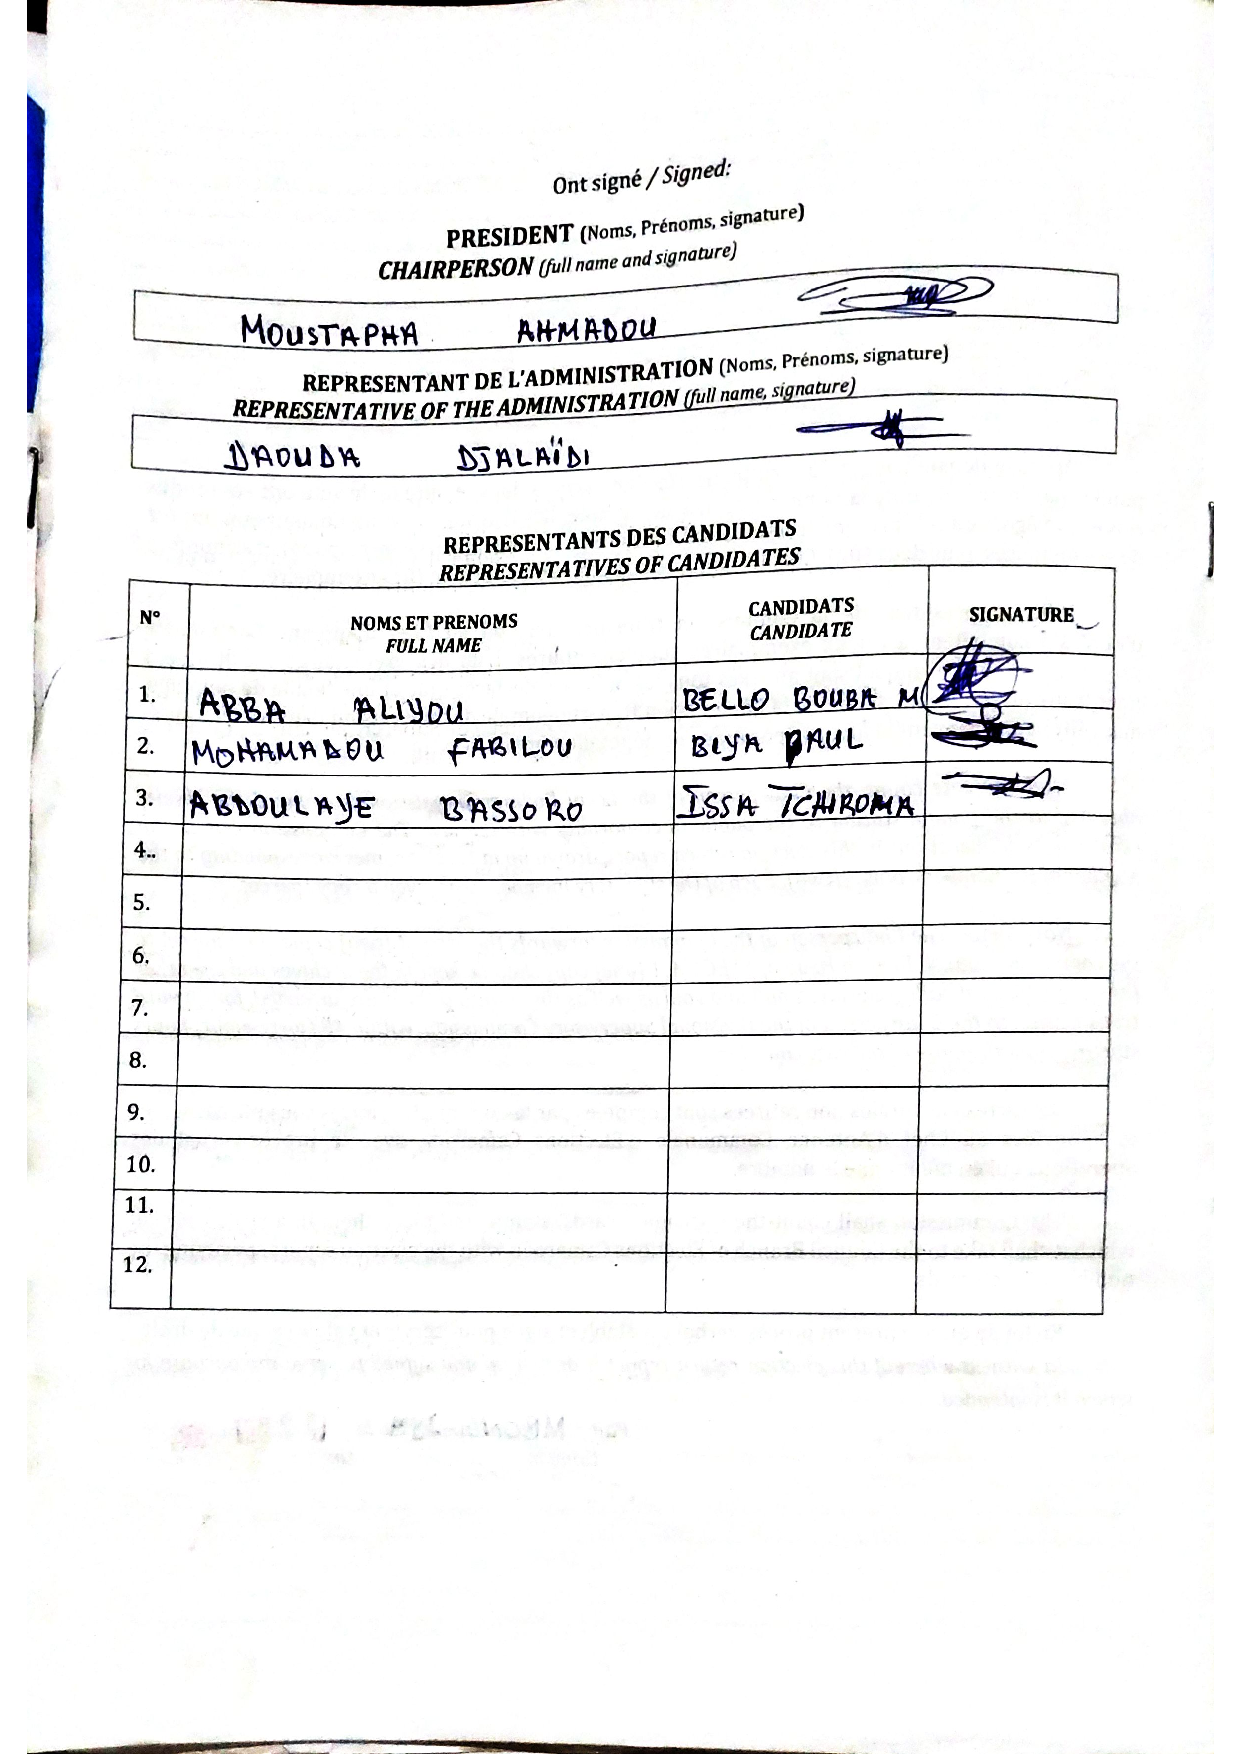 Ont signé / Signed:
PRESIDENT (Noms, Prénoms, signature)
CHAIRPERSON (full name and signature)
MOUSTAPHA AHMADOU
REPRESENTANT DE L'ADMINISTRATION (Noms, Prénoms, signature)
REPRESENTATIVE OF THE ADMINISTRATION (full name, signature)
DAOUDA DJALAÏDI
REPRESENTANTS DES CANDIDATS
REPRESENTATIVES OF CANDIDATES
N° NOMS ET PRENOMS CANDIDATS SIGNATURE
FULL NAME CANDIDATE
1. ABBA ALIYOU BELLO BOUBA M
2. MOHAMADOU FABILOU BIYA PAUL
3. ABDOULAYE BASSORO ISSA TCHIROMA
4..
5.
6.
7.
8.
9.
10.
11.
12.